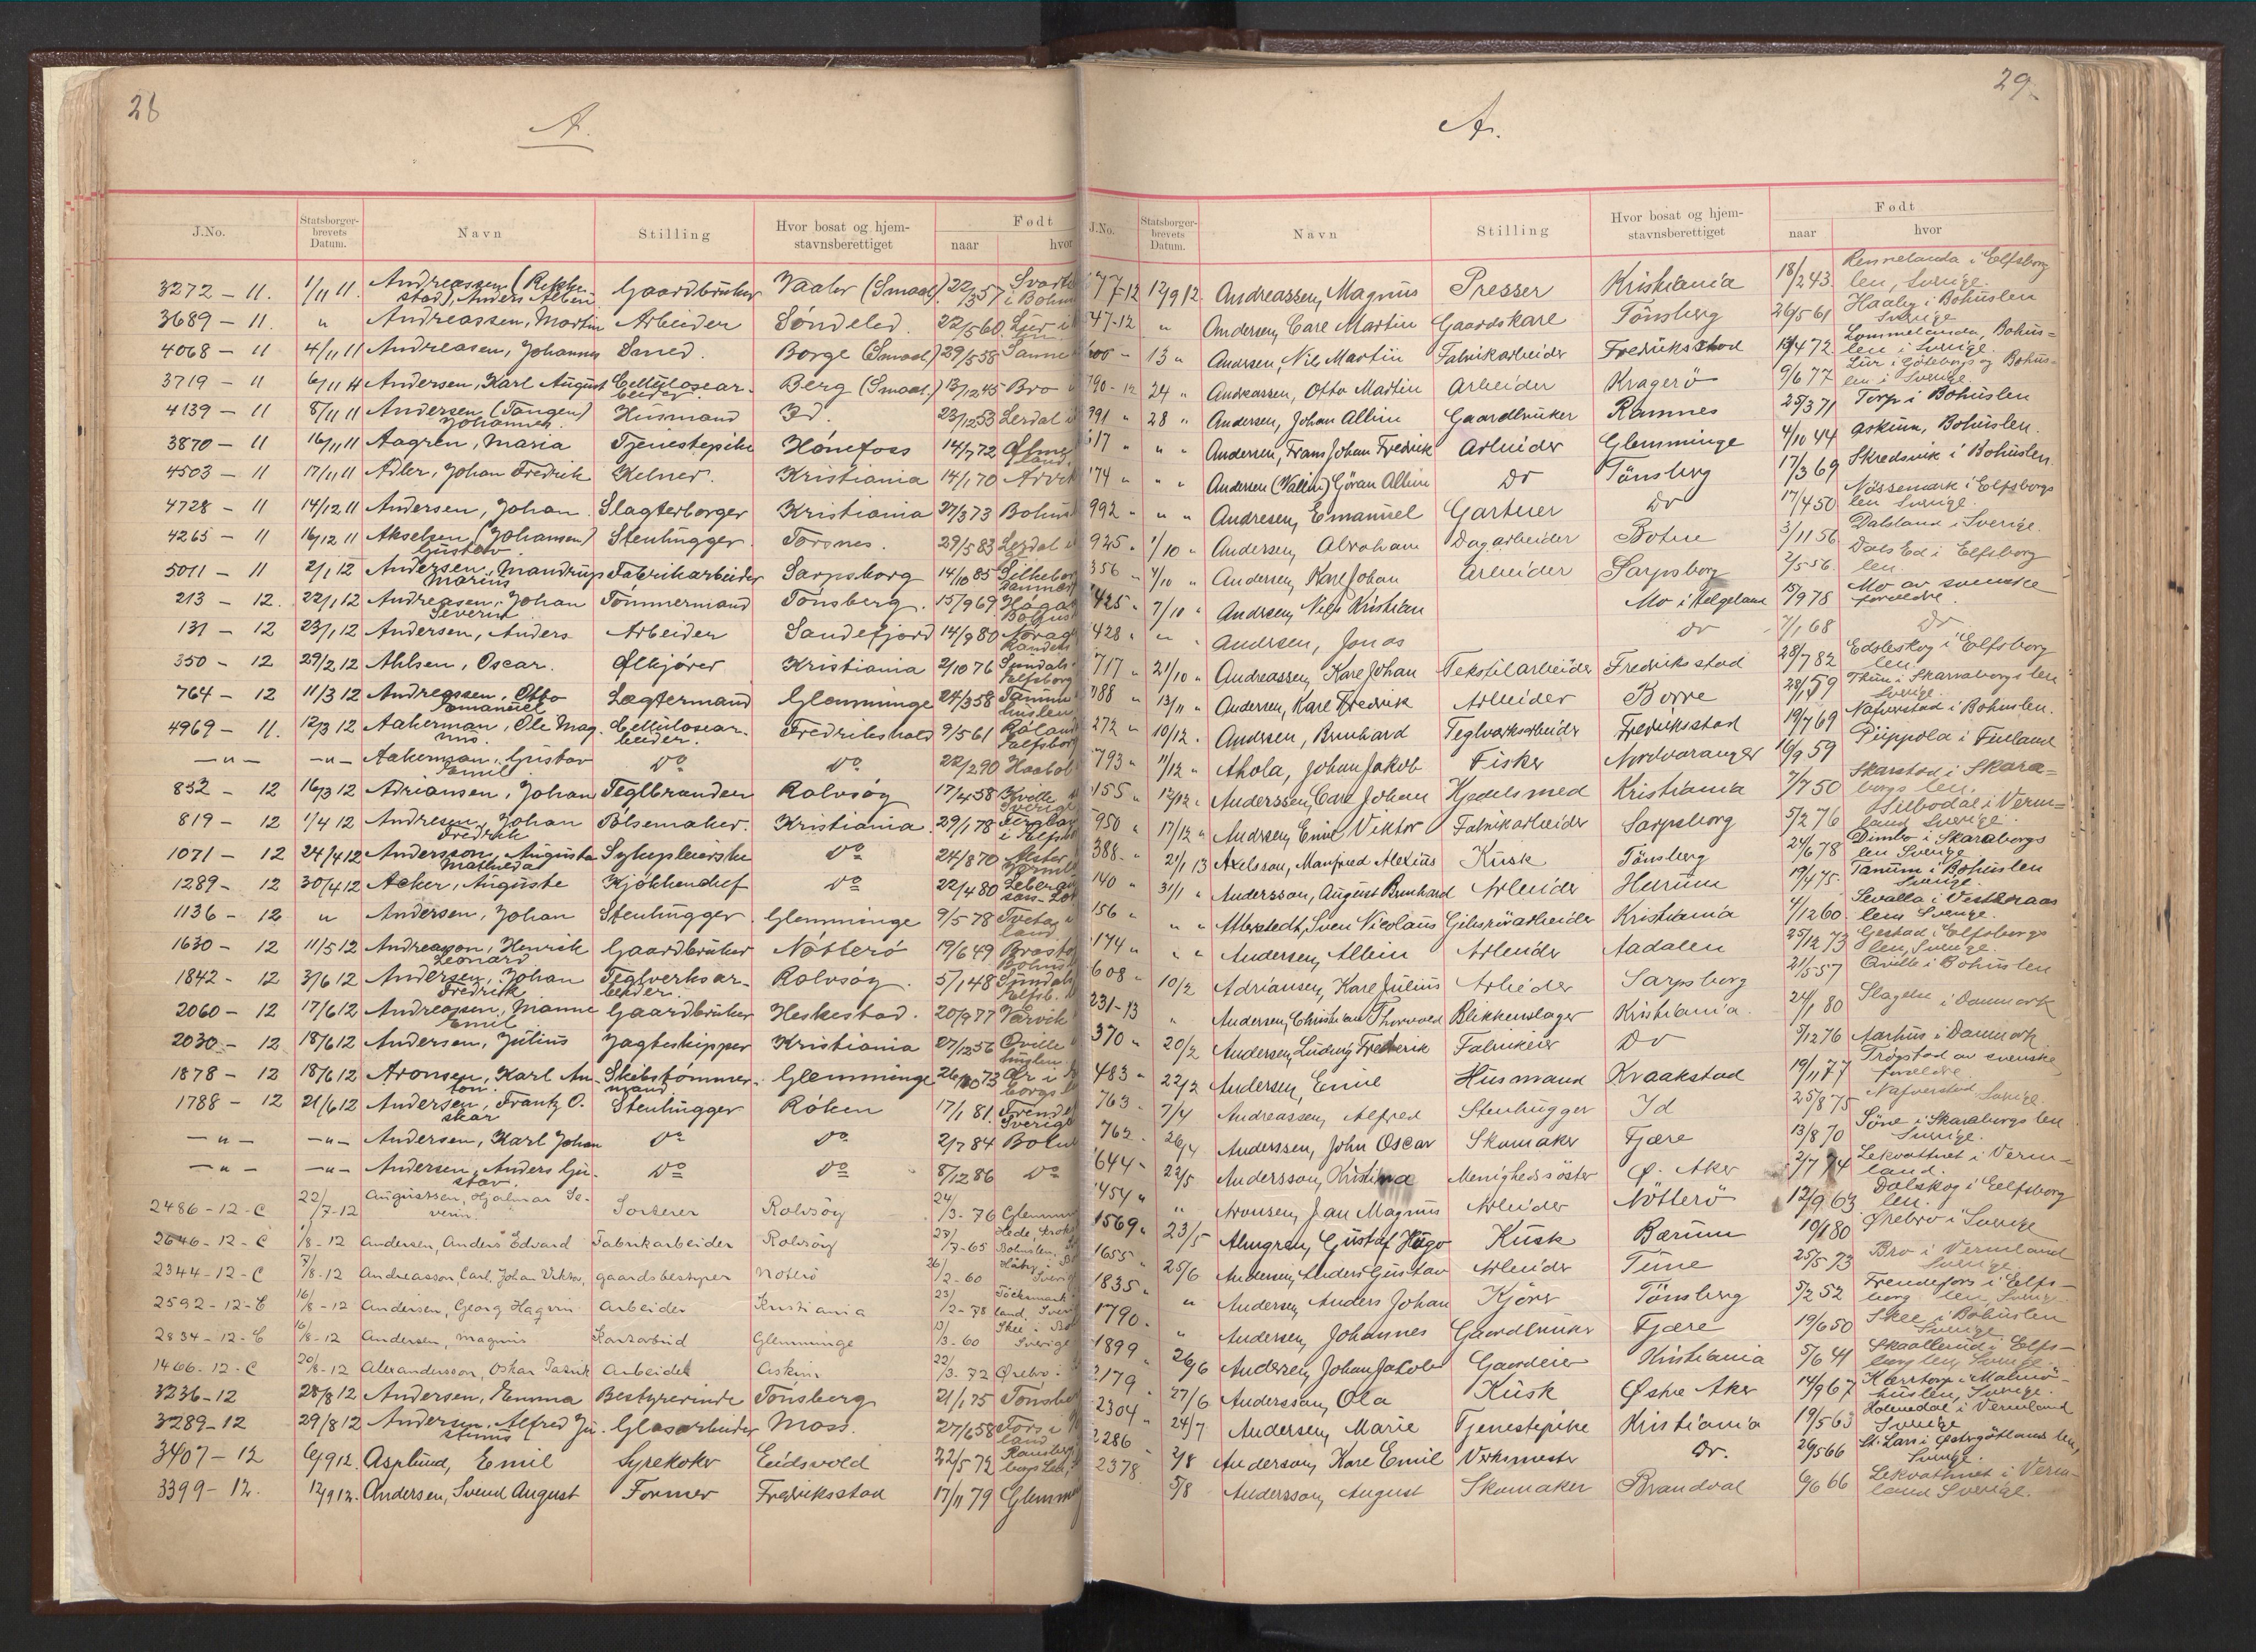 28
A.
J.No. Statsborger-brevets Datum. Navn Stilling Hvor bosat og hjem-stavnsberettiget Født naar hvor
3272 - 11. 1/11 11. Andreassen (Rekke-stad), Anders Alben Gaardbruker Vaaler (Smaal.) 22/3 57
3689 - 11. " Andreassen, Martin Arbeider Söndeled. 22/5 60. Lur i
4068 - 11 4/11 11 Andreasen, Johannes Smed. Borge (Smaal.) 29/5 58
3719 - 11 6/11 11 Andersen, Karl August Cellulosear-beider Berg (Smaal.) 13/12 45 Bro
4139 - 11 8/11 11 Andersen (Tangen) Johannes Husmand Id. 23/12 53 Lerdal
3870 - 11 16/11 11 Aagren, Maria Tjenestepike Hönefoss 14/7 72
4503 - 11 17/11 11 Adler, Johan Fredrik Kelner. Kristiania 14/1 70
4728 - 11 14/12 11 Andersen, Johan Slagterborger Kristiania 27/3 73
4265 - 11 16/12 11 Akselsen (Johansen) Gustav Stenhugger Torsnes. 29/5 83 Lerdal
5011 - 11 2/1 12 Andersen, Mandrup Marius Fabrikarbeider Sarpsborg 14/10 85
213 - 12. 22/1 12 Andreasen, Johan Severin Tömmermand Tönsberg. 15/9 69
131 - 12 23/1 12 Andersen, Anders Arbeider Sandefjord 14/9 80
350 - 12 29/2 12 Ahlsen, Oscar. Ølkjörer Kristiania 2/10 76
764 - 12 11/3 12 Andreassen, Otto Emanuel Lægtermand Glemminge 24/3 58
4969 - 11. 12/3 12 Aakerman, Ole Mag-nus. Cellulosear-beider. Fredrikshald 9/5 61
—"— —"— Aakerman, Gustav Emil do do 22/2 90
832 - 12 16/3 12 Adriansen, Johan Teglbrænder Rolvsöy 17/4 58
819 - 12 1/4 12 Andresen, Johan Fredrik Pölsemaker. Kristiania. 29/1 78
1071 - 12 24/4 12 Andersson, Augusta Mathilda Sykepleierske do 24/8 70
1289 - 12 30/4 12 Acker, Auguste Kjökkenchef do 22/4 80
1136 - 12 " Andersen, Johan Stenhugger. Glemminge 9/5 78
1630 - 12 11/5 12 Andreasson, Henrik Leonard Gaardbruker Nötterö 19/6 49
1842 - 12 3/6 12 Andersen, Johan Fredrik Teglverksar-beider. Rolvsöy. 5/1 48
2060 - 12 17/6 12 Andreasen, Manne Emil Gaardbruker Heskestad. 20/9 77
2030 - 12 18/6 12 Andersen, Julius Jagteskipper Kristiania 27/2 56
1878 - 12 18/6 12 Aronsen, Karl An-ton. Skibstömmer-mand Glemminge 26/10 73
1788 - 12 21/6 12 Andersen, Frantz O-skar Stenhugger Röken 17/1 81.
—"— —"— Andersen, Karl Johan do do 2/7 84
—"— —"— Andersen, Anders Gu-stav. do do 8/12 86 do
2486-12-C 22/7-12 Augustssen, Hjalmar Se-verin. Sorterer Rolvsöy 24/3-76
2646-12-C 1/8-12 Andersen, Anders Edvard Fabrikarbeider Rolvsöy 27/7-65
2344-12-C 7/8-12 Andreasson, Carl Johan Viktor, gaardsbestyrer Nöterö 26/2-60
2592-12-C 16/8-12 Andersen, Georg Hagvin Arbeider Kristiania 23/2-78
2834-12-C 16/8-12 Andersen, Magnus Glemminge 13/3-60 Sverige
1466-12-C 20/8-12 Alexandersson, Oskar Patrik Arbeider Askim 22/3-72 Örebro
3236-12 28/8 12 Andersen, Emma Bestyrerinde Tönsberg 21/1 75
3289-12 29/8 12 Andersen, Alfred Ju-stinus Glasarbeider Moss. 27/6 58
3407-12 6/9 12. Asplund, Emil Syrekoker Eidsvold 22/5 72
3399-12. 12/9 12. Andersen, Svend August Former Fredriksstad 17/11 79
29.
A.
J.No. Statsborger-brevets Datum. Navn Stilling Hvor bosat og hjem-stavnsberettiget Født naar hvor
77-12 12/9 12. Andreassen, Magnus Presser Kristiania 18/2 43. Rennelanda i Elfsborg len, Sverige.
47-12 " Andersen, Carl Martin Gaardskarl Tönsberg 26/5 61 Haaby i Bohuslen Sverige
13 " Andersen, Nils Martin Fabrikarbeider Fredriksstad Lommelanda, Bohus=len i Sverige.
790-12 24 " Andreassen, Otto Martin Arbeider Kragerö 9/6 77 Lur i Göteborgs og Bohus-len i Sverige.
991 " 28 " Andersen, Johan Albin Gaardbruker Ramnes 25/3 71 Torp i Bohuslen
517 " " " Andersen, Frans Johan Fredrik Arbeider Glemminge 4/10 44 Askum, Bohuslen.
174 " " " Andersen (Wallin) Göran Albin Do Tönsberg 17/3 69 Skredsvik i Bohuslen.
992 " " " Andresen, Emanuel Gartner Do 17/4 50 Nössemark i Elfsborgs len Sverige
925 " 1/10 " Andersen, Abraham Dagarbeider Botne 3/11 56. Dalsland i Sverige.
356 " 4/10 " Andersen, Karl Johan Arbeider Sarpsborg 2/5 56. Dals Ed i Elfsborg len.
425 " 7/10 " Andersen, Nils Kristian Mo i Helgeland 15/9 78 Mo av svenske forældre.
428 " " " Andersen, Jonas Do 7/1 68 Do
717 " 21/10 " Andreassen, Karl Johan Tekstilarbeider Fredriksstad 28/7 82 Edsleskog i Elfsborg len
788 " 13/11 " Andersen, Karl Fredrik Arbeider Borre 28/1 59 Thun i Skaraborgs len Sverige.
272 " 10/12. Andersen, Bernhard Teglverksarbeider Fredriksstad 19/7 69 Nafverstad i Bohuslen.
793 " 11/12 " Ahola, Johan Jakob Fisker Nordvaranger 16/9 59 Piippola i Finland
155 " 12/12 " Anderssen, Carl Johan Kjedelsmed Kristiania 7/7 50 Skarstad i Skara=borgs len.
950 " 17/12 " Andersen, Emil Viktor Fabrikarbeider Sarpsborg 5/2 76 Silbodal i Verm=land Sverige.
388 " 21/1 13 Axelsson, Manfred Alexius Kusk Tönsberg 24/6 78 Dimbo i Skaraborgs len Sverige
140 " 31/1 " Andersson, August Bernhard Arbeider Hurum 19/4 75. Tanum i Bohuslen Sverige.
156 " " " Atterstedt, Sven Nicolaus Kristiania 4/12 60. Sevalla i Vestteraas len Sverige.
174 " " " Andersen, Albin Arbeider Aadalen 25/12 73 Gestad i Elfsborgs len, Sverige.
608 " 10/2 Adriansen, Karl Julius Arbeider Sarpsborg 21/5 57 Qville i Bohuslen
231-13 " Andersen, Christian Thorvald Blikkenslager Kristiania. 24/1 80 Slagelse i Danmark
370 " 20/2 Andersen, Ludvig Frederik Fabrikeier Do 5/12 76 Aarhus i Danmark
483 " 22/2 Andersen, Emil Husmand Kraakstad 19/11 77 Trögstad av svenske forældre.
763 " 7/4 Andreassen, Alfred Stenhugger Id 25/8 75 Nafverstad Sverige.
762 " 26/4 Anderssen, John Oscar Skomaker Fjære 13/8 70 Söne i Skaraborgs len Sverige.
644 " 22/5 Andersson, Kristina Menighedssöster Ö. Aker 2/7 74 Lekvattnet i Verm=land.
454 " " Aronsen, Jan Magnus Arbeider Nötterö 12/9 63 Dalskog i Elfsborg len.
1569 " 23/5 Almgren, Gustaf Hugo Kusk Bærum 10/1 80 Ørebro i Sverige
1655 " 25/6 Andersen, Anders Gustav Arbeider Tune 25/5 73 Bro i Vermland Sverige
1835 " " Andersen, Anders Johan Kjörer Tönsberg 5/2 52 Frendefors i Elfs-borg len, Sverig.
1790. " Andersen, Johannes Gaardbruker Fjære 19/6 50 Skee i Bohuslen Sverige
1899 26/6 Andersen, Johan Jakob Gaardeier Kristiania 5/6 41 Skaallerud i Elfs-borg len, Sverige.
2179 " 27/6 Andersson, Ola Kusk Østre Aker 14/9 67 Kærrtorp i Malmö-huslen, Sverige.
2304 " 24/7 Andersen, Marie Tjenestepike Kristiania 19/5 63 Holmedal i Vermland Sverige
2286 2/8 Anderson, Karl Emil Verksmester Do. 26/5 66 St. Lars i Östergötlands len, Sverige.
2378 5/8 Andersson, August Skomaker Brandval 6/6 66 Lekvattnet i Verm-land Sverige.